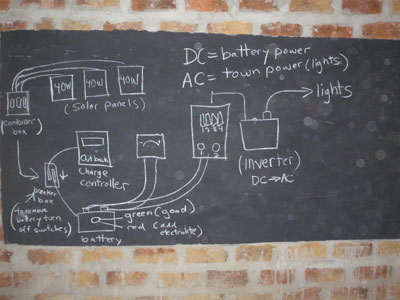 DC = battery power
AC = town power (lights)
40W 40W 40W
(Solar panels)
(combiner
box)
→ lights
1 2 3 4
1 2
(inverter)
DC → AC
Outback
charge
controller
breaker
box
(to remove
battery turn
off switches)
battery
green (good)
red (add
electrolite)